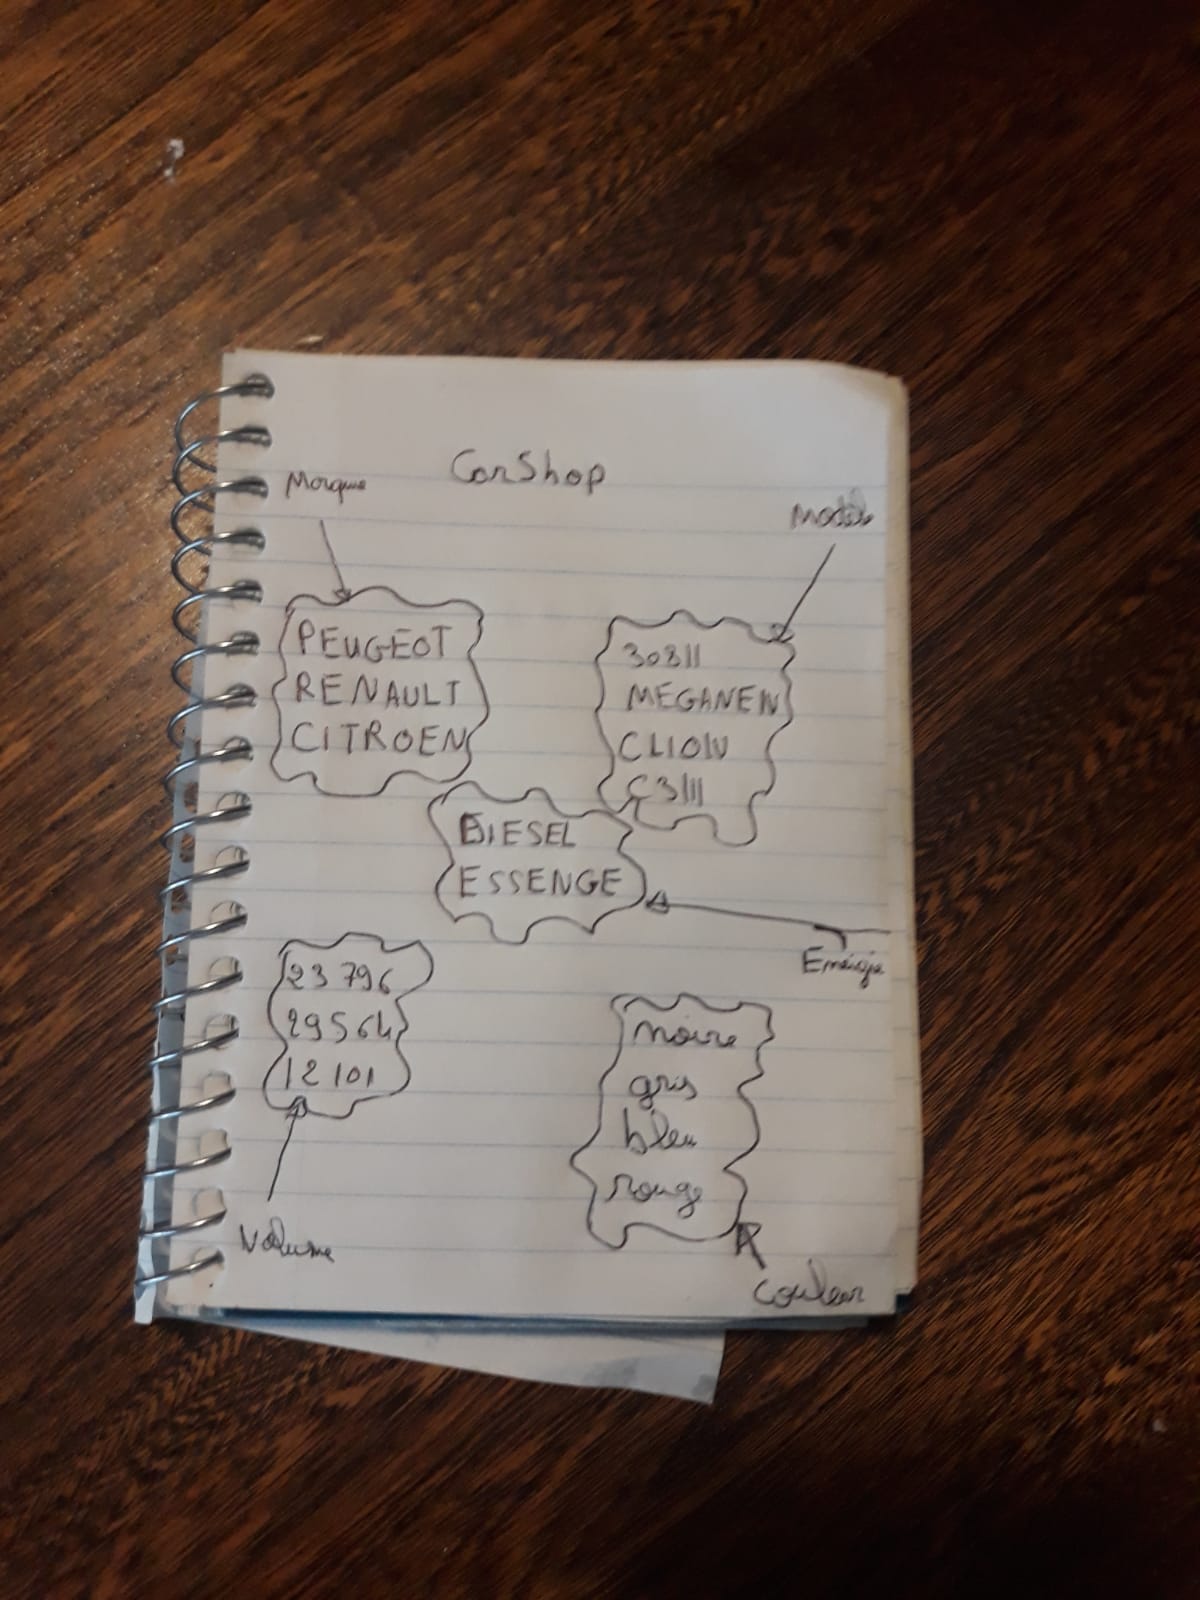 CarShop
Marque
Modèle
PEUGEOT
RENAULT
CITROEN
308II
MEGANEIV
CLIOIV
C3III
DIESEL
ESSENGE
Energie
23 796
29564
12101
Volume
noire
gris
bleu
rouge
Couleur